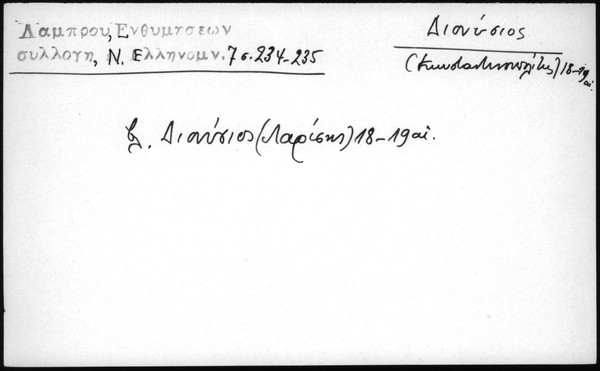 Λαμπρου, Ενθυμησεων
συλλογη, Ν. Ελληνομν. 7 σ. 234-235
Διονύσιος
(Κωνσταντινουπολίτης) 18-19 αἰ.
βλ. Διονύσιος (Λαρίσης) 18-19 αἰ.